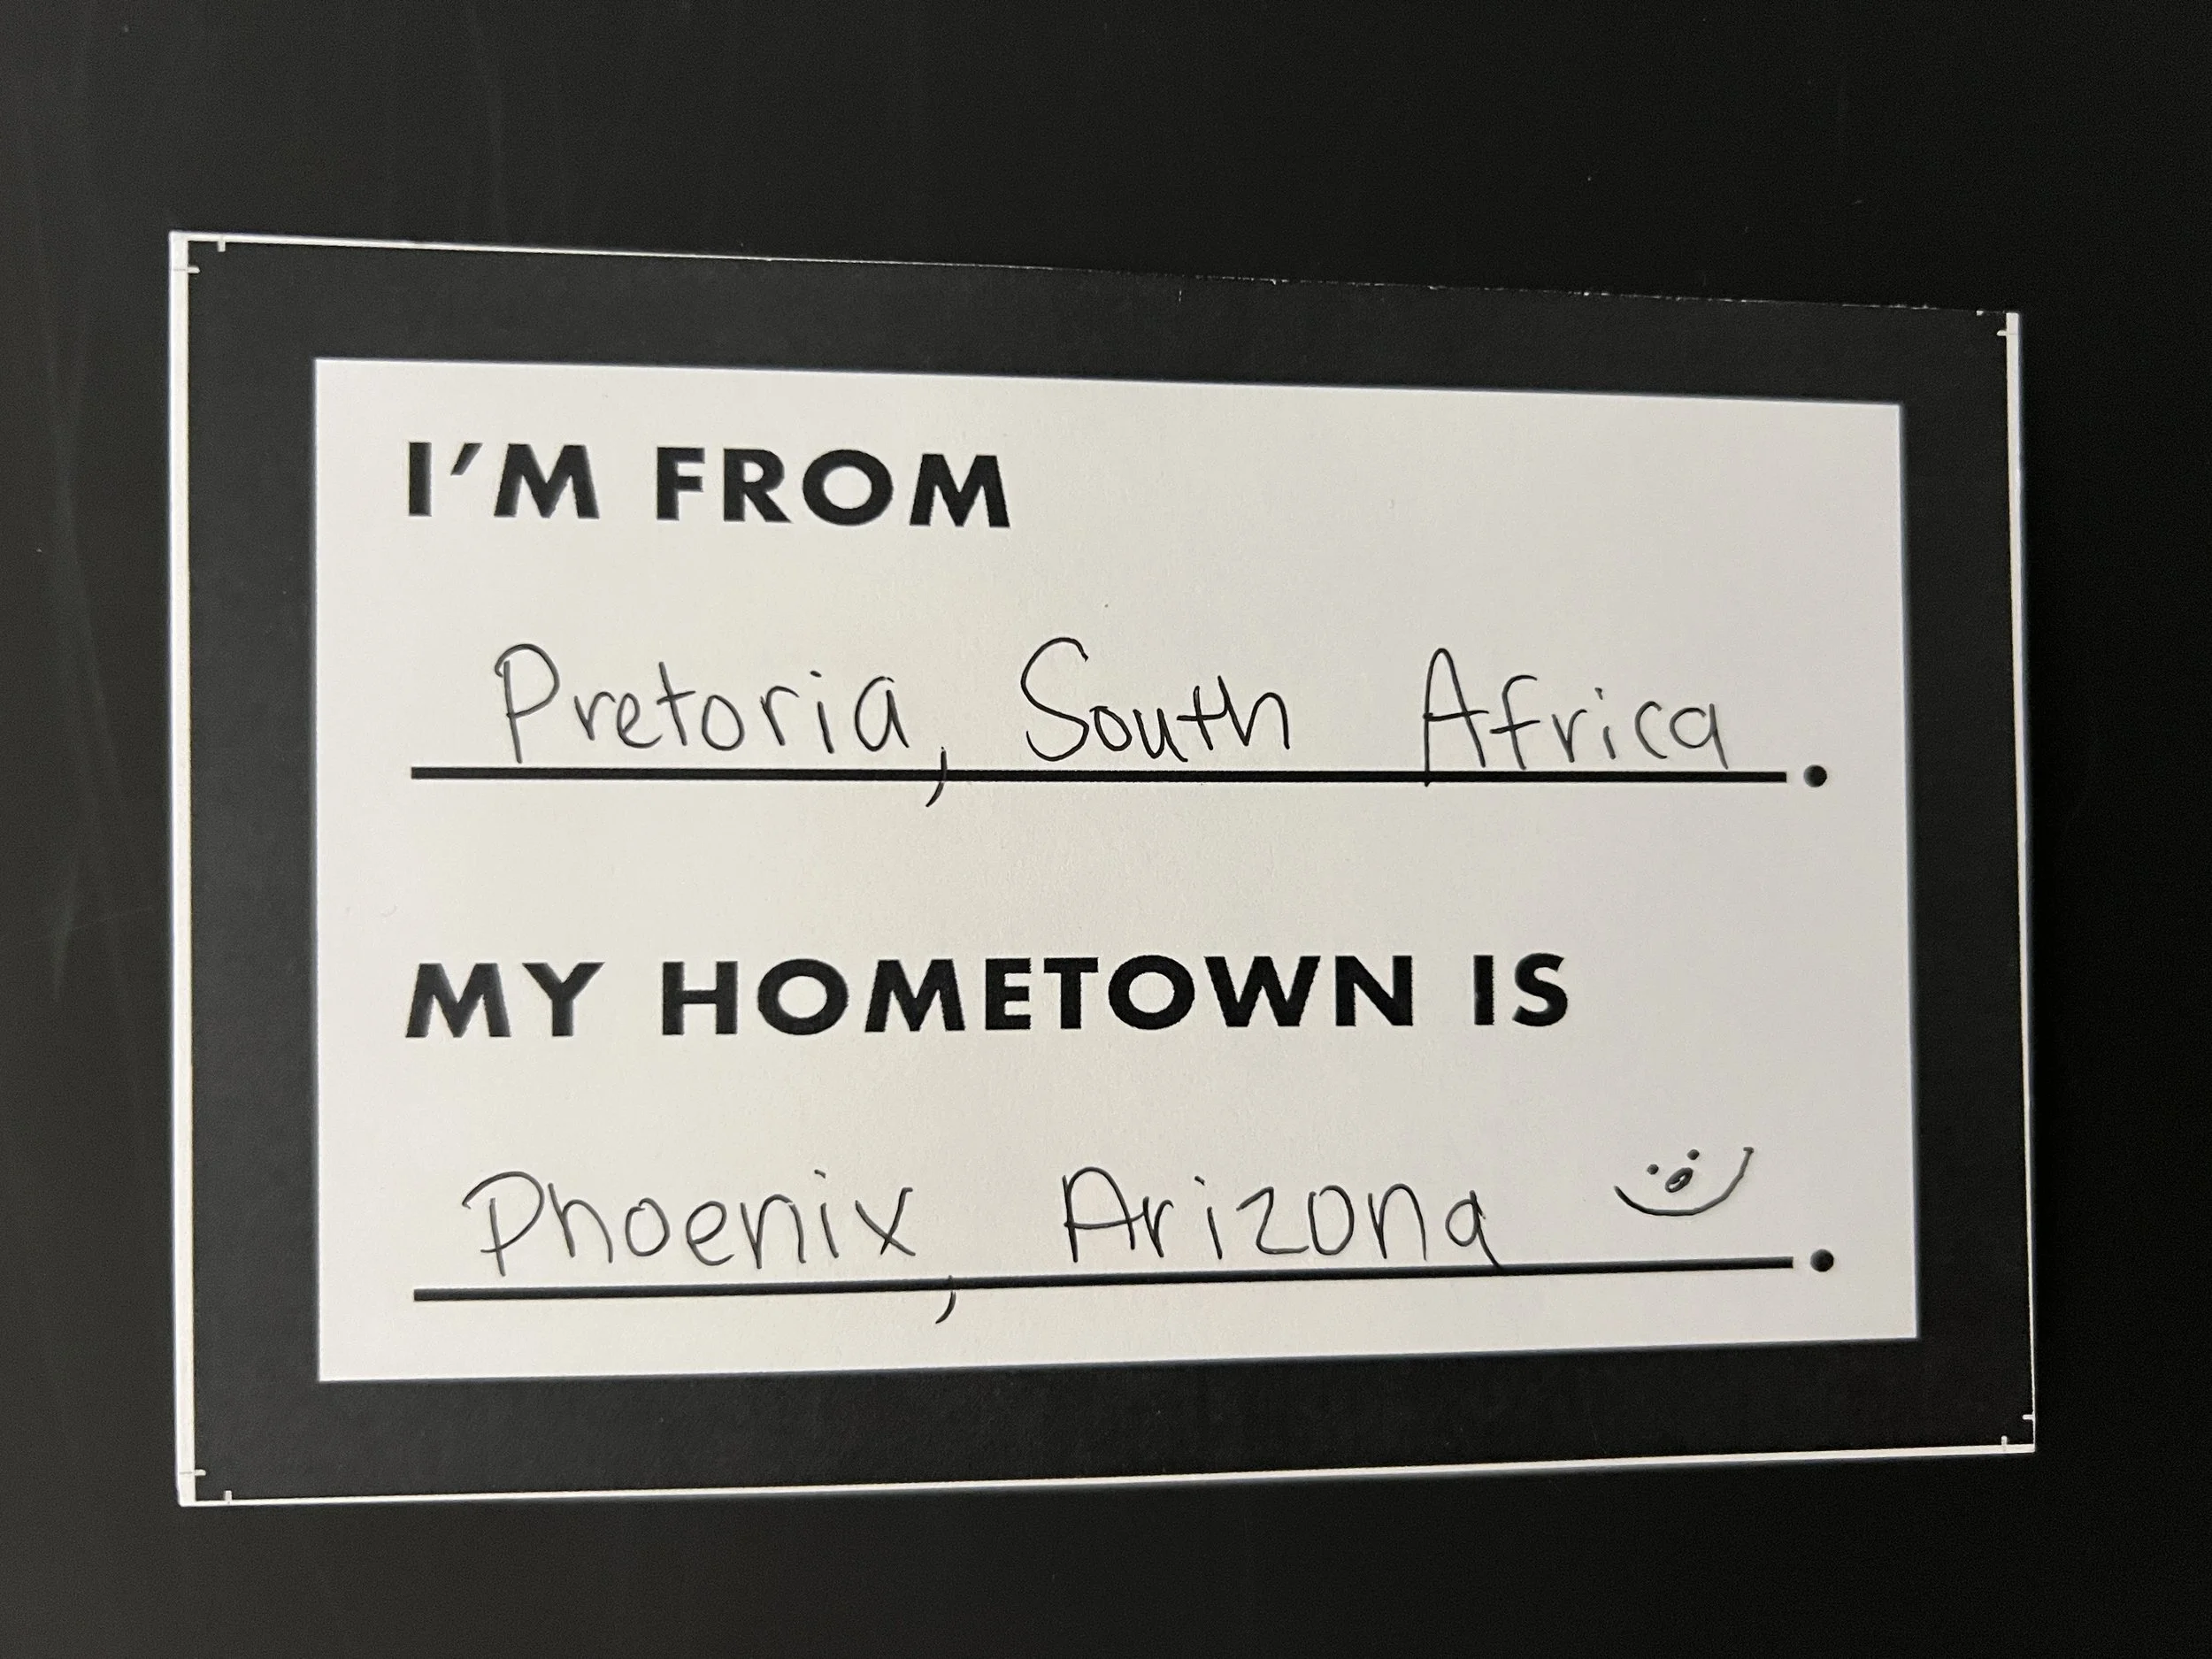 I'M FROM
Pretoria, South Africa.
MY HOMETOWN IS
Phoenix, Arizona.